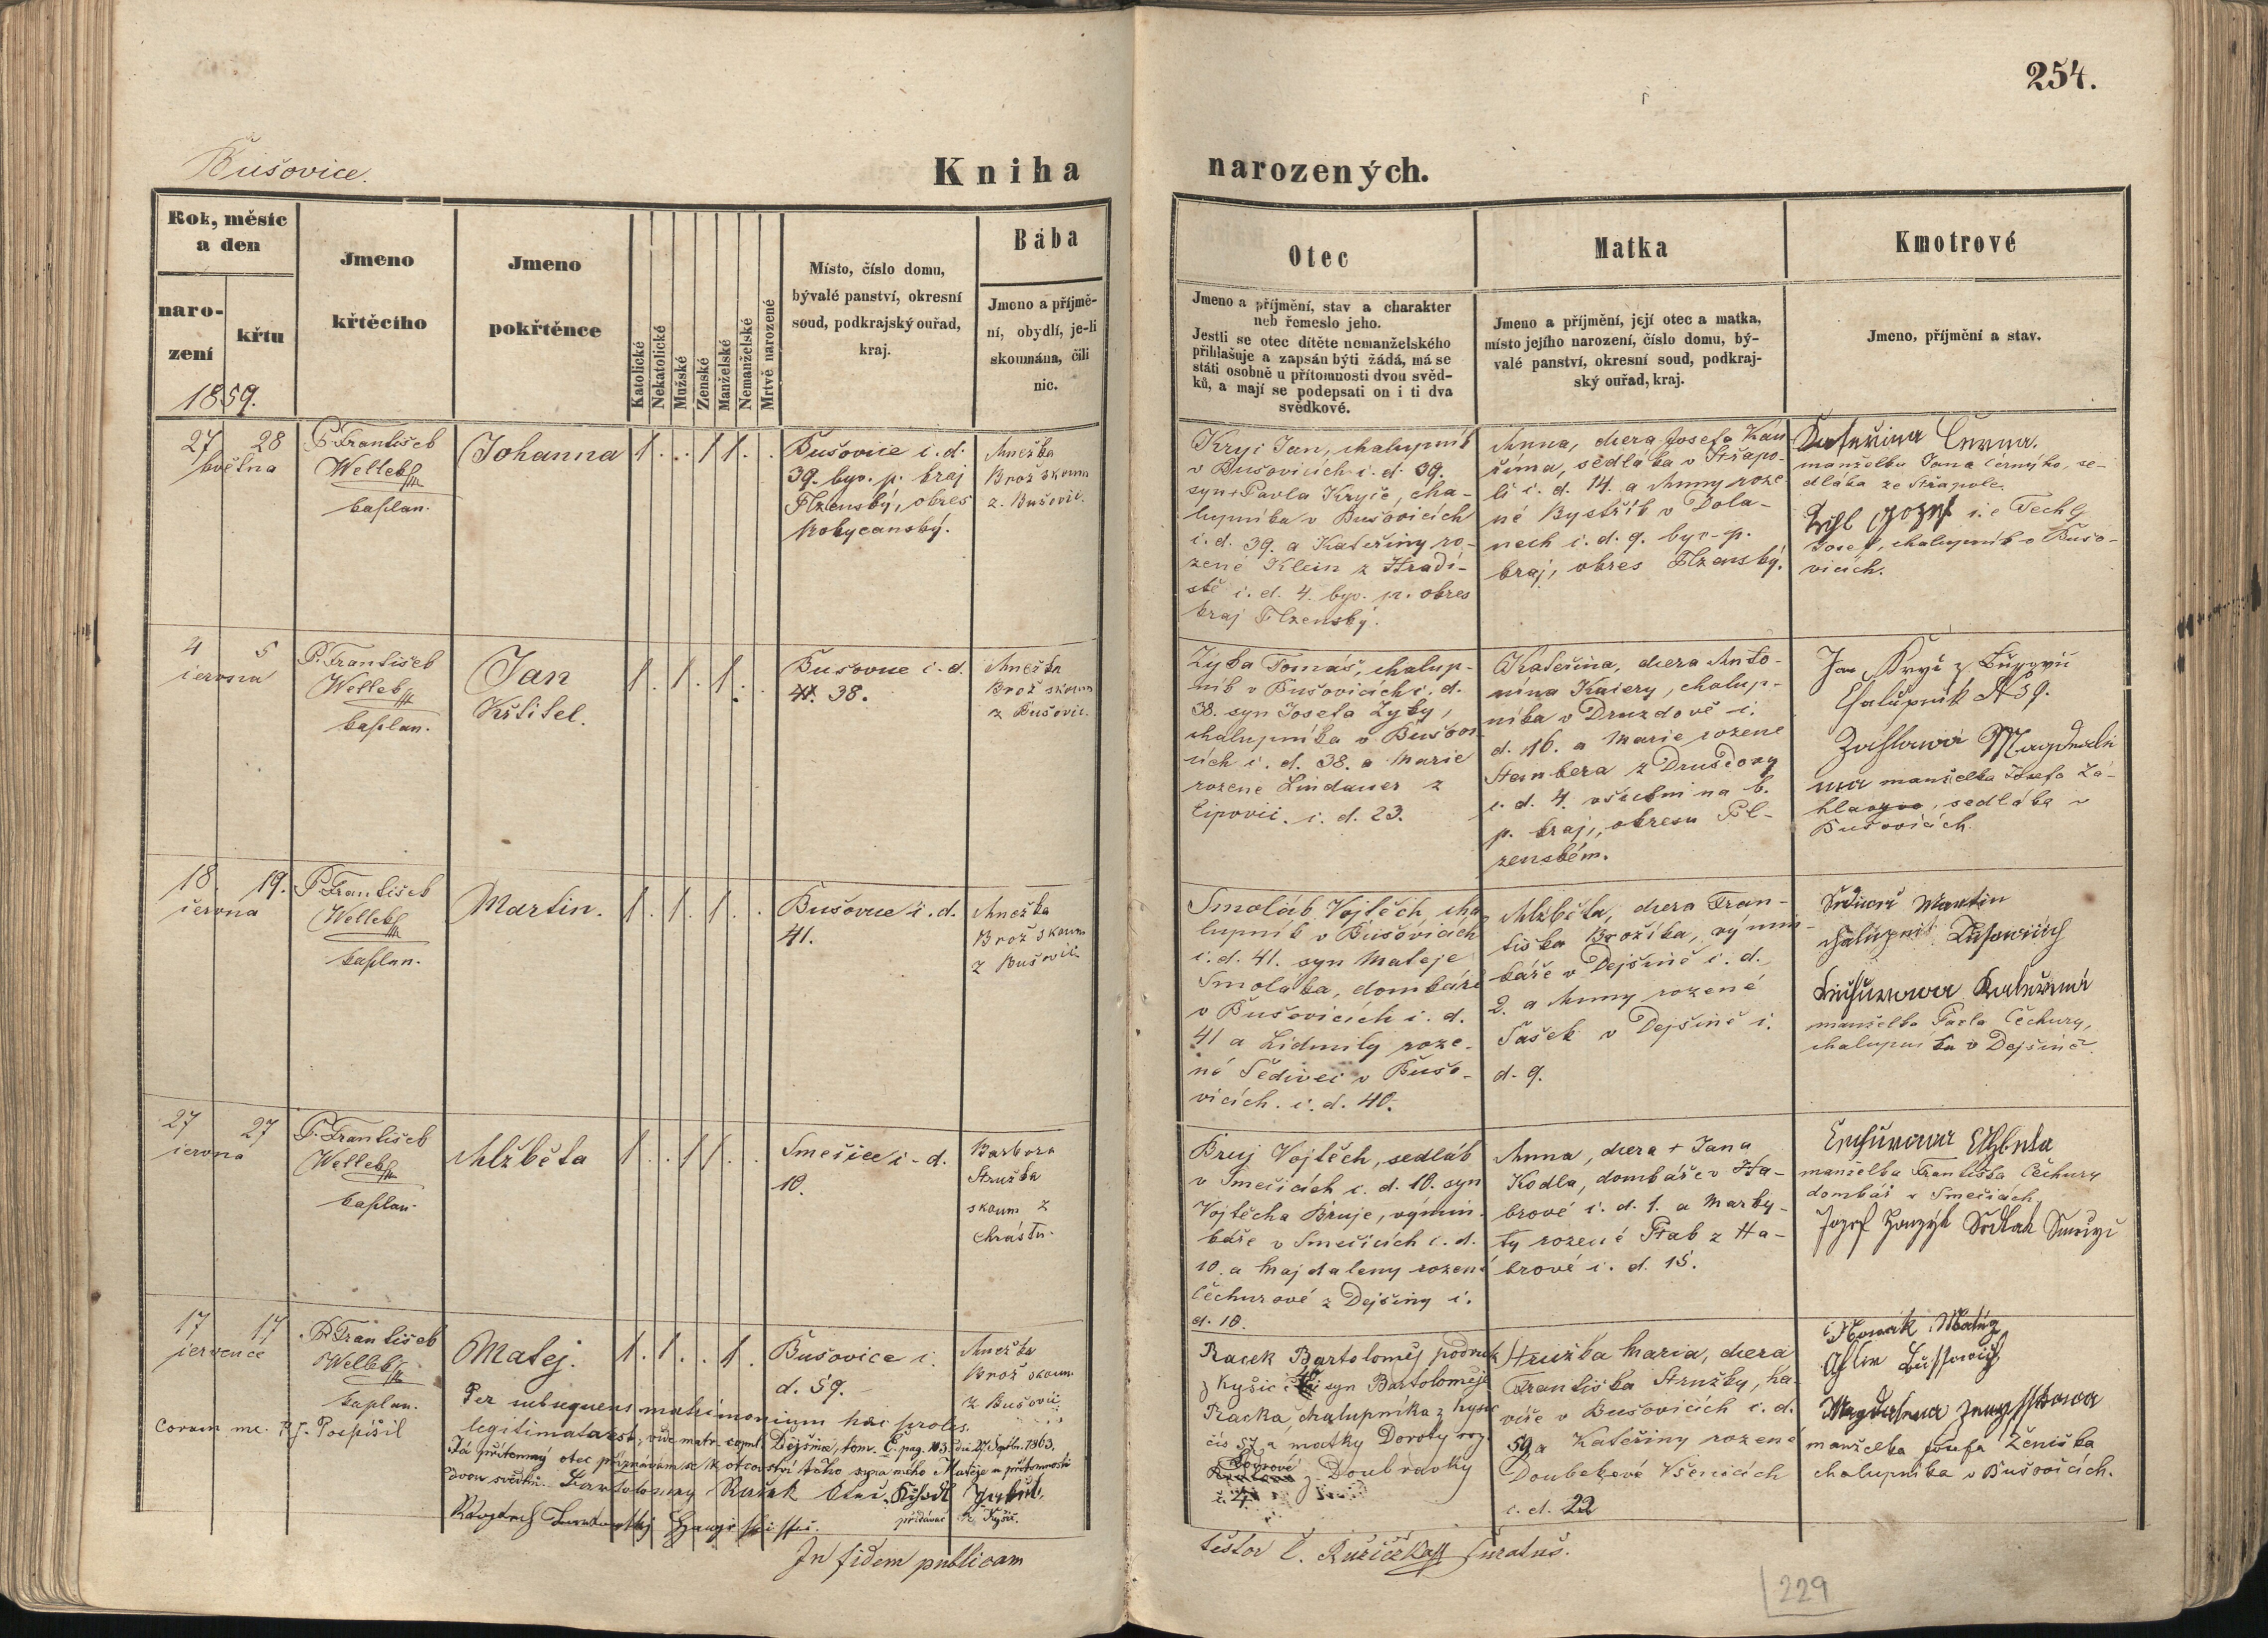 254.
Bušovice.
Kniha narozených.
Rok, měsíc
a den
naro-
zení
křtu
1859.
Jmeno
křtěcího
Jmeno
pokřtěnce
Katolické
Nekatolické
Mužské
Ženské
Manželské
Nemanželské
Mrtvě narozené
Místo, číslo domu,
bývalé panství, okresní
soud, podkrajský ouřad,
kraj.
Bába
Jmeno a příjmě-
ní, obydlí, je-li
skoumána, čili
nic.
Otec
Jmeno a příjmění, stav a charakter
neb řemeslo jeho.
Jestli se otec dítěte nemanželského
přihlašuje a zapsán býti žádá, má se
státi osobně u přítomnosti dvou svěd-
ků, a mají se podepsati on i ti dva
svědkové.
Matka
Jmeno a příjmění, její otec a matka,
místo jejího narození, číslo domu, bý-
valé panství, okresní soud, podkraj-
ský ouřad, kraj.
Kmotrové
Jmeno, příjmění a stav.
27 28
května
P. František
Welleb
kaplan.
Johanna
1 . . 1 1 . .
Bušovice č. d.
39. byv. p. kraj
Plzenský, okres
Rokycanský.
Anežka
Brož skoum
z Bušovic.
Kryč Jan, chalupník
v Bušovicích č. d. 39.
syn + Pavla Kryče, cha-
lupníka v Bušovicích
č. d. 39. a Kateřiny ro-
zené Klein z Hradi-
ště č. d. 4. byv. p. okres
kraj Plzenský.
Anna, dcera Josefa Kau
říma, sedláka v Střapo-
li č. d. 14. a Anny roze
né Bystřik v Dola-
nech č. d. 9. byv. p.
kraj, okres Plzenský.
Kateřina Černa.
manželka Jana Černýho, se-
dláka ze Střapole.
i. e. Techl
Josef, chalupník v Bušo-
vicích.
4 5
června
P. František
Welleb
kaplan.
Jan
Křtitel.
1 . 1 . 1 . .
Bušovice č. d.
38.
Anežka
Brož skoum
z Bušovic.
Zyka Tomáš, chalup-
ník v Bušovicích č. d.
38. syn Josefa Zyky,
chalupníka v Bušovi
cích č. d. 38. a Marie
rozene Lindauer z
Lipovic. č. d. 23.
Kateřina, dcera Anto-
nína Kaiery, chalup-
níka v Druzdově č.
d. 16. a Marie rozene
z Drusdovy
č. d. 4. všickni na b.
p. kraj, okresu Pl-
zenském.
Jan Kryč z
Chalupník N 39.
Magdale
na manželka Josefa Zá-
sedláka v
Bušovicích.
18. 19.
června
P. František
Welleb
kaplan.
Martin.
1 . 1 . 1 . .
Bušovice č. d.
41.
Anežka
Brož skoum
z Bušovic
Smolák Vojtěch, cha
lupník v Bušovicích
č. d. 41. syn Mateje
Smoláka, domkáře
v Bušovicích č. d.
41 a Lidmily roze-
né Šedivci v Bušo-
vicích. č. d. 40.
Alžběta, dcera Fran-
tiška Brožíka, výmin-
káře v Dejšině č. d.
2. a Anny rozené
Šašek v Dejšině č.
d. 9.
Martin
Kateřina
manželka Pavla Čechury,
chalupníka v Dejšině.
27 27
června
P. František
Welleb
kaplan.
Alžběta
1 . . 1 1 . .
Smečice č. d.
10.
Barbora
Stružka
skoum z
Chrástu.
Bruj Vojtěch, sedlák
v Smečicích č. d. 10. syn
Vojtěcha Bruje, výmin-
káře v Smečicích č. d.
10. a Majdaleny rozené
Čechurové z Dejšiny č.
d. 10.
Anna, dcera + Jana
Kodla, domkáře v Ha-
brové č. d. 1. a Marky-
ty rozené Ptak z Ha-
brové č. d. 15.
manželka Františka Čechury
domkář v Smečicích
Jozef Sedlak
17 17
července
P. František
Welleb
kaplan.
Matej.
1 . 1 . . 1 .
Bušovice č.
d. 59.
Anežka
Brož skoum.
z Bušovic
Racek Bartoloměj
z Kyšic syn Bartoloměje
Racka chalupníka z Kyšic
čís 57 a matky Doroty roz.
z Doubravky
č. 4.
Stružka Maria, dcera
Františka Stružky, ha-
víře v Bušovicích č. d.
59 a Kateřiny rozené
Doubekové Všenicích
č. d. 22
Nowák Matěj
Magdalena
manželka Josefa Ženiška
chalupníka v Bušovicích.
Per subsequens matrimonium haec proles
legitimata est, vide matr. copul. Dejšina, tom. E. pag. 103. 27 Septbr. 1863.
coram me. P. J. Pospíšil
Já přítomný otec přiznávám se k otcovství tohoto syna mého Mateje u přítomnosti
dvou svědků. Bartolomej Racek Otec.
z Kyšic.
In fidem publicam
testor Č. Růžička curatus.
229